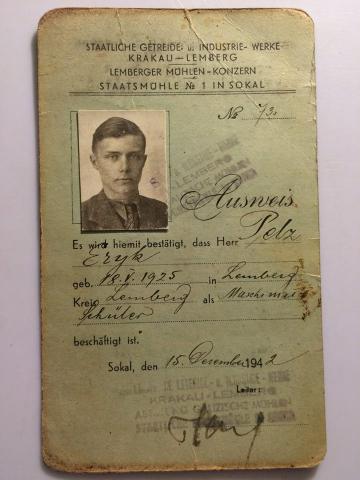 STAATLICHE GETREIDE- u. INDUSTRIE-WERKE
KRAKAU—LEMBERG
LEMBERGER MÜHLEN-KONZERN
STAATSMÜHLE № 1 IN SOKAL
№ 73
Ausweis
Es wird hiermit bestätigt, dass Herr Pelz
Eryk
geb. 18.V.1925 in Lemberg
Kreis Lemberg als
schüler
beschäftigt ist.
Sokal, den 15. Dezember 1942
Leiter:
KRAKAU-LEMBERG